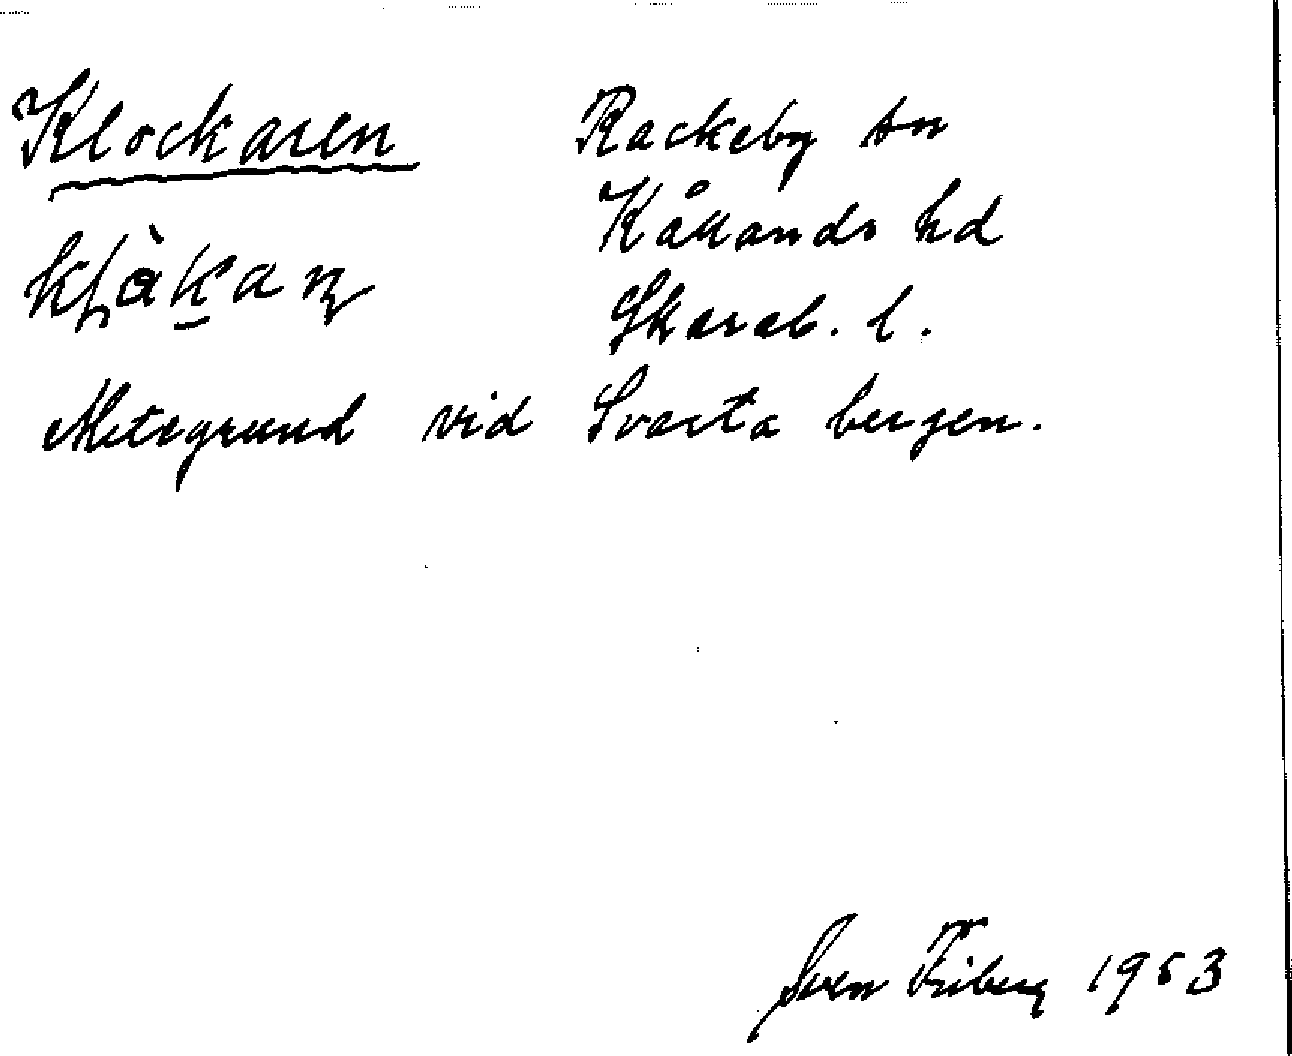 Klockaren
Rackeby sn
Kållands hd
Skarab. l.
Metegrund vid Svarta bergen.
Sven Friberg 1953